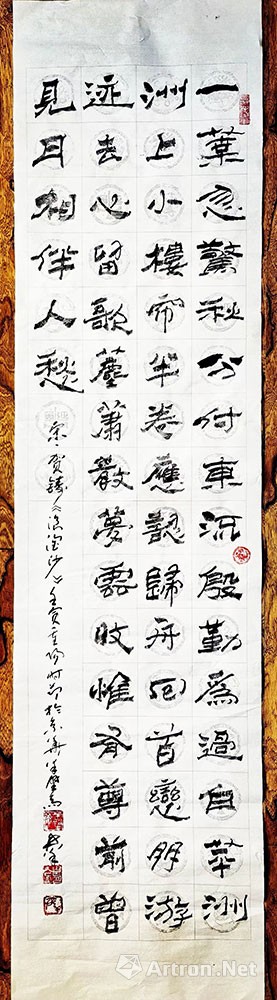 一葉忽驚秋分付東流殷勤為過白苹洲
洲上小樓帘半卷應認歸舟回首戀朋游
迹去心留歌塵蕭散夢雲收惟有尊前曾
見月相伴人愁
宋·賀鑄《浪淘沙》壬寅重陽時節於京華
Artron.Net